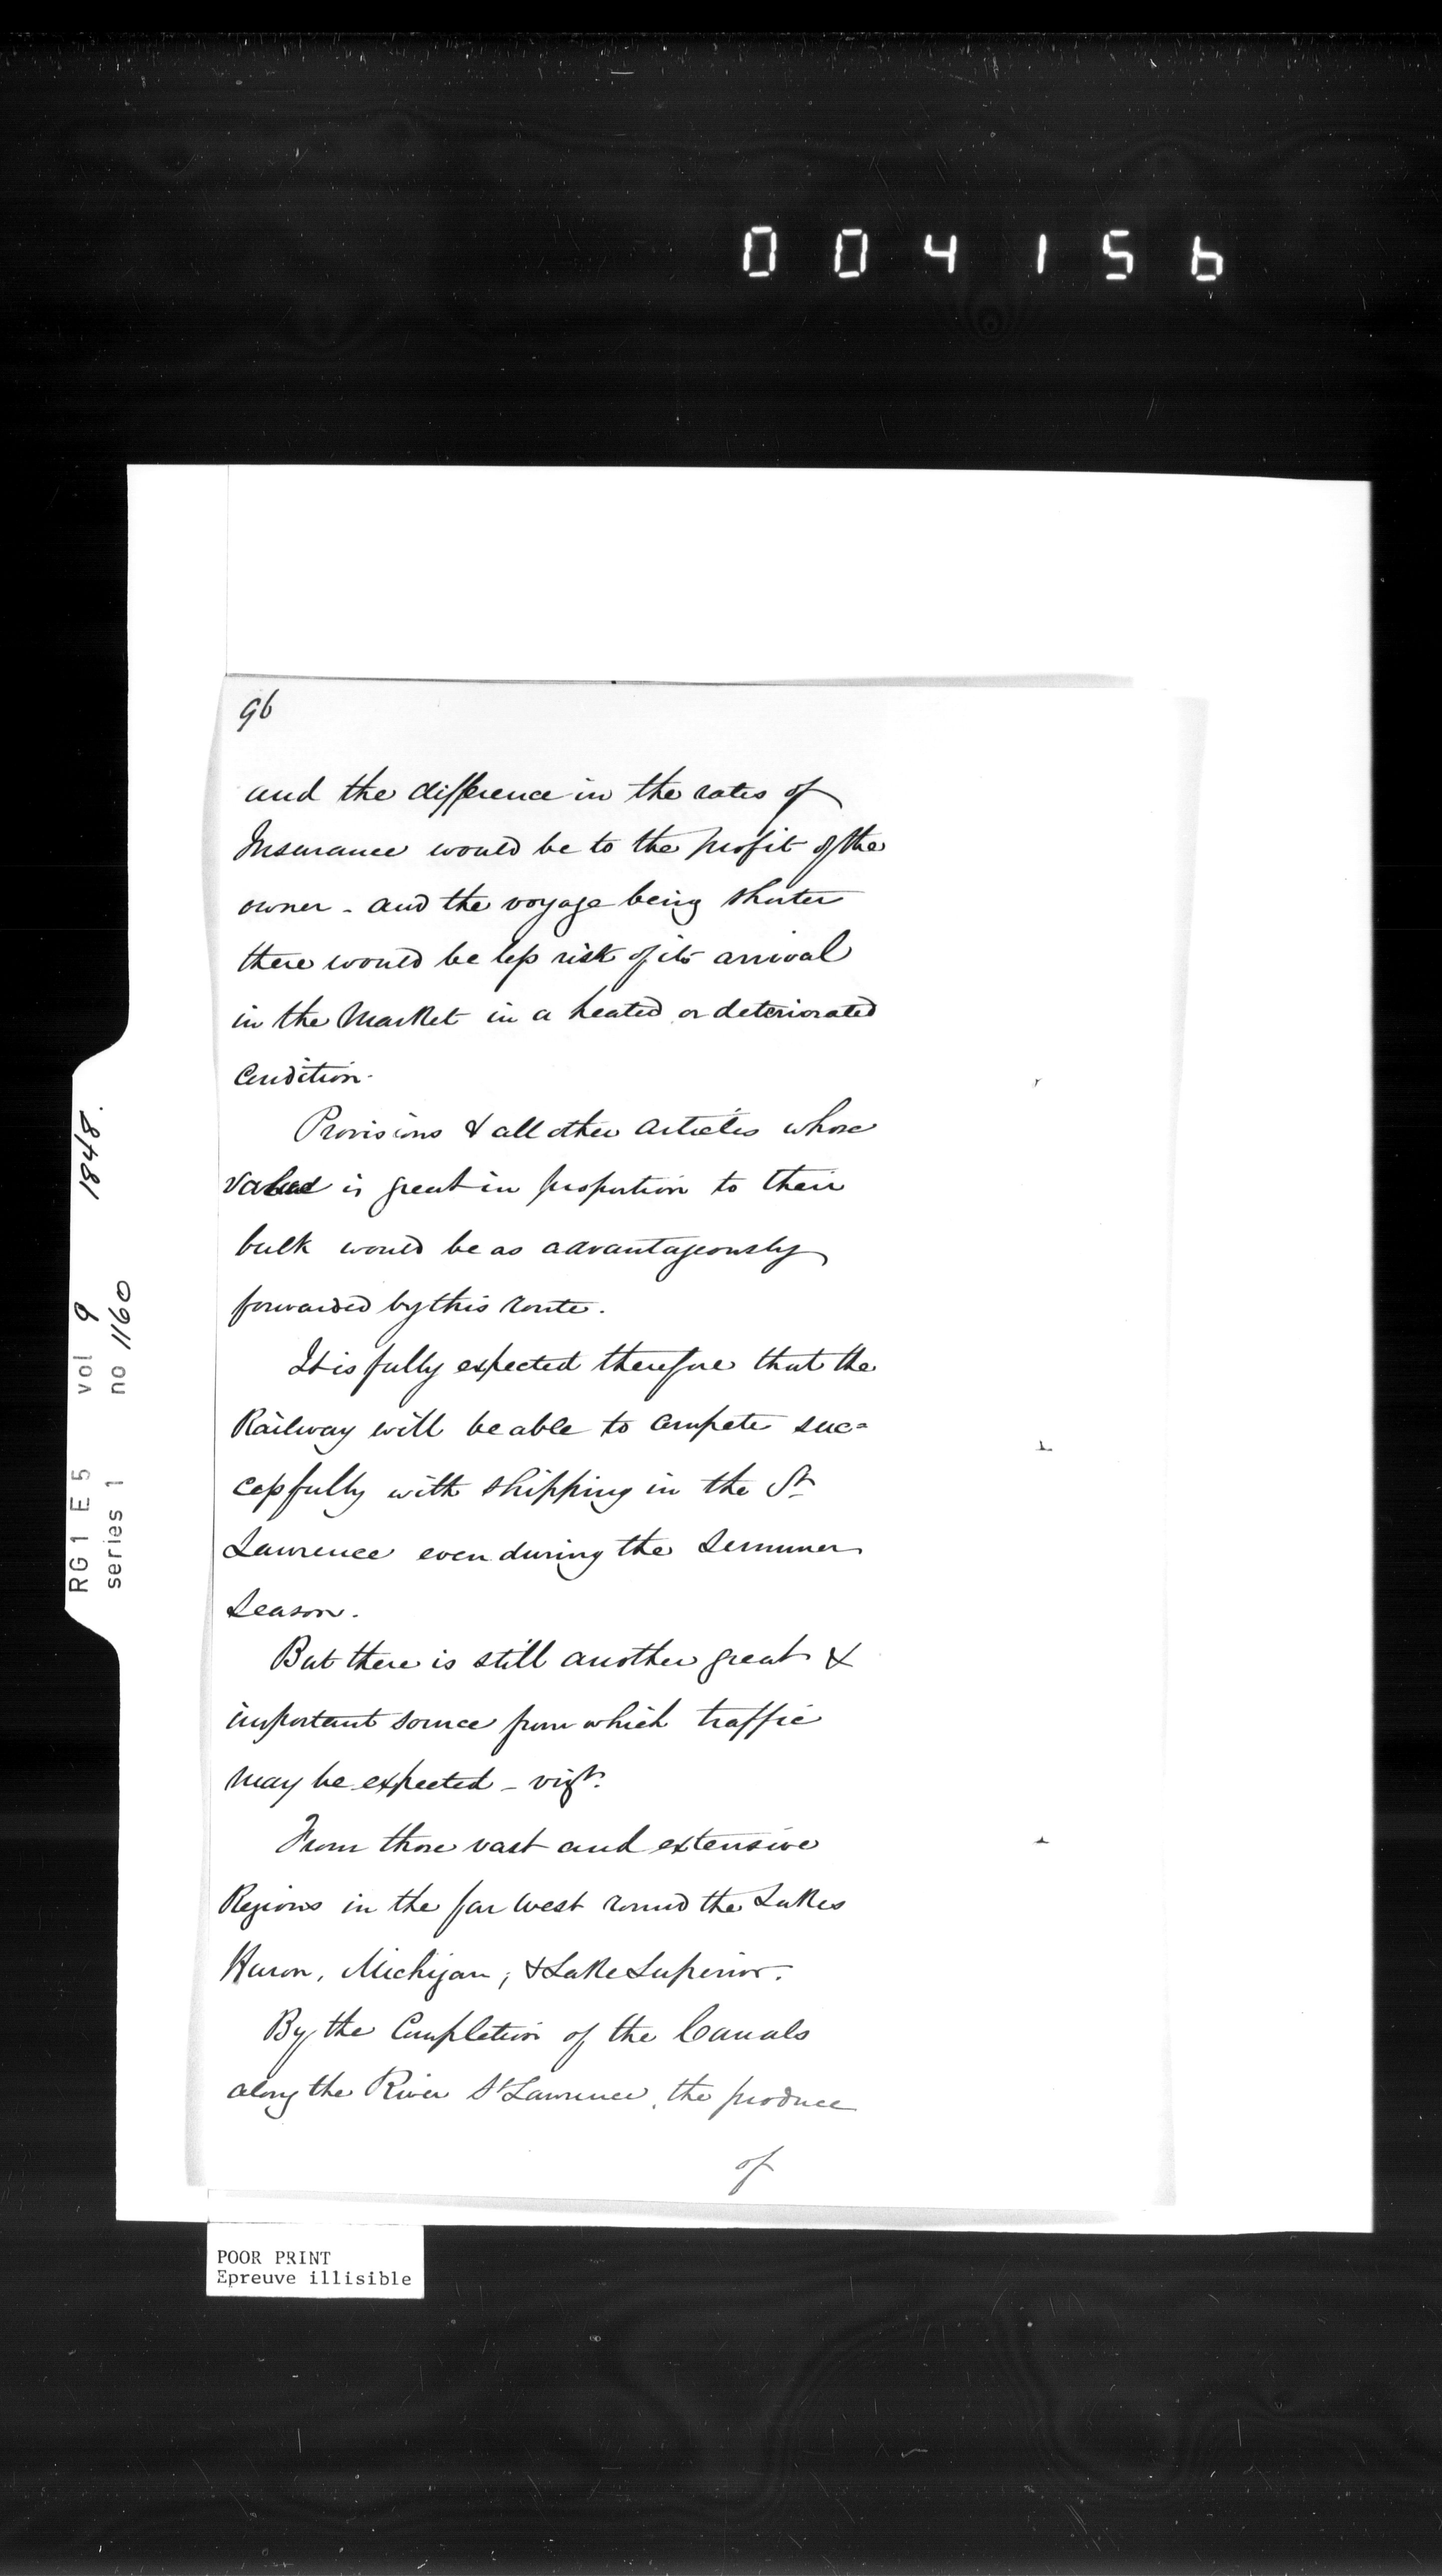 004156
96
and the difference in the rates of
Insurance would be to the profit of the
owner - and the voyage being shorter
there would be less risk of its arrival
in the Market in a heated or deteriorated
Condition.
Provisions & all other articles whose
value is great in proportion to their
bulk would be as advantageously
forwarded by this route.
It is fully expected therefore that the
Railway will be able to compete suc=
cessfully with shipping in the St
Lawrence even during the Summer
Season.
But there is still another great &
important source from which traffic
may be expected - vizt.
From those vast and extensive
Regions in the far West round the Lakes
Huron, Michigan, & Lake Superior.
By the Completion of the Canals
along the River St Lawrence, the produce
of
RG 1 E 5 vol 9 1848.
series 1 no 1160
POOR PRINT
Epreuve illisible